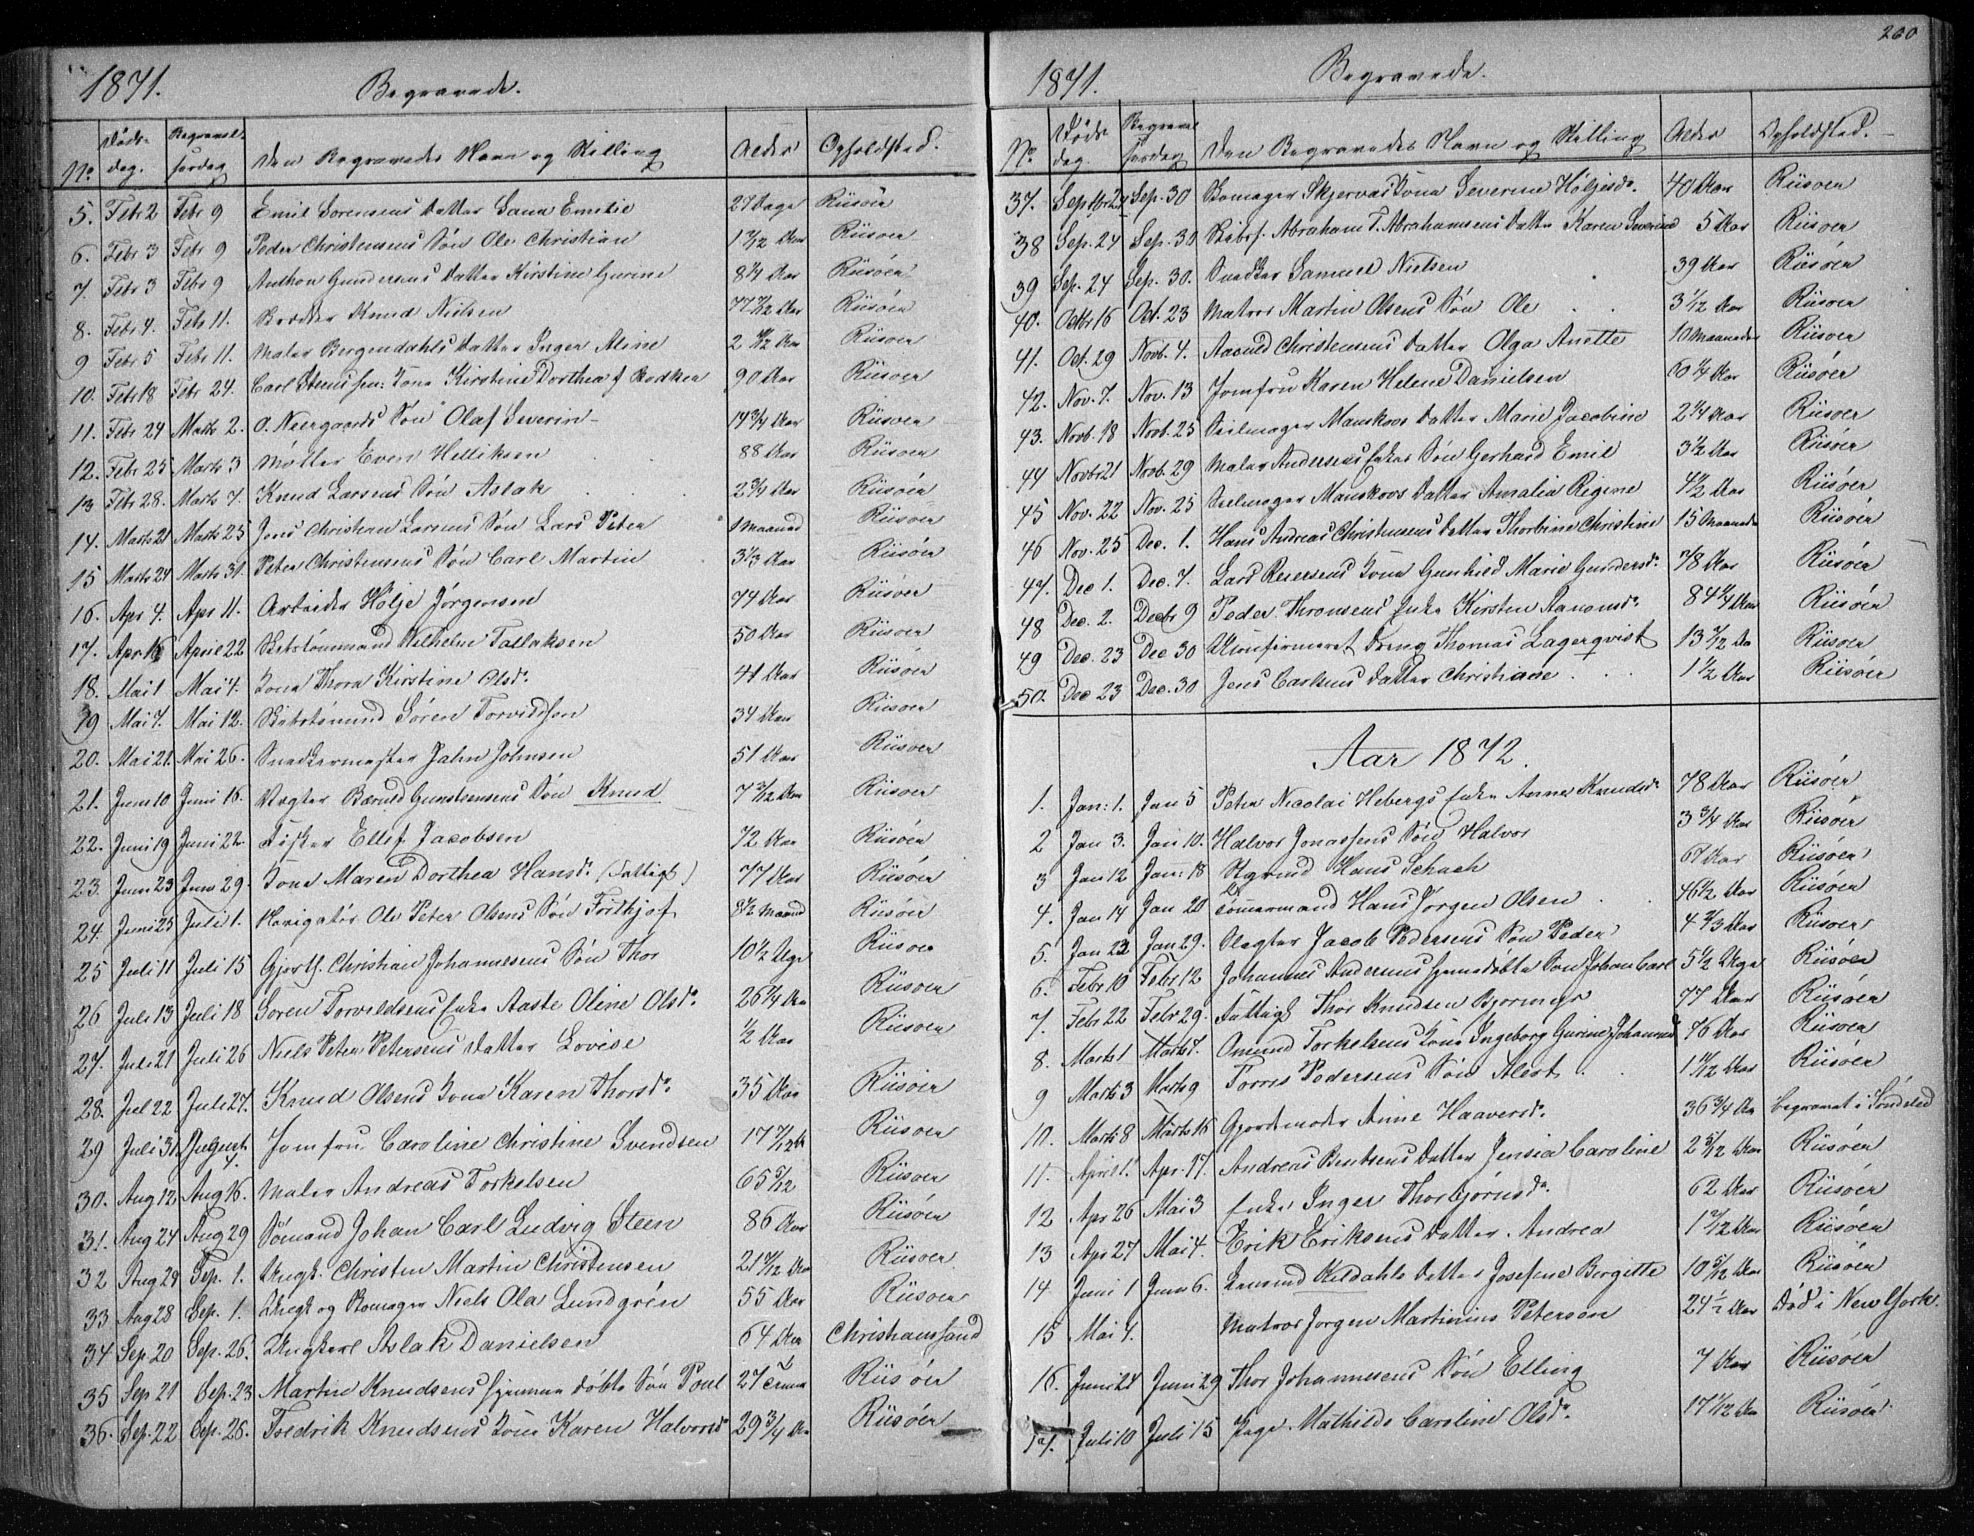 1871.
Begravede.
No Døds-dag. Begravelsesdag Den Begravedes Navn og Stilling Alder Opholdsted.
5. Febr 2 Febr 9 Emil Sørensens Datter Sana Emilie 27 Dage Riisøer
6. Febr 3 Febr 9 Peder Christensens Søn Ole Christian Aar Riisøer
7. Febr 3 Febr 9 Anthon Gundersens Datter Kirstine Gurine 8 1/4 Aar Riisøer
8. Febr 4. Febr 11. Knud Nielsen Aar Riisøer
9 Febr 5 Febr 11. Maler Bergendahls Datter Inger Aline Aar Riisøer
10. Febr 18 Febr 24. Carl Kirstine Dorthea f. Bodker 90 Aar Riisøer
11. Febr 24 Marts 2. O. Neergaards Søn Olaf Severin 14 3/4 Aar Riisøer
12. Febr 25 Marts 3 Møller Even Helliksen 88 Aar Riisøer
13 Febr 28. Marts 7. Knud Larsens Søn Aslak 2 3/4 Aar Riisøer
14. Marts 21 Marts 25 Jens Christian Larsens Søn Lars Peter Maaned Riisøer
15 Marts 24 Marts 31. Peter Christensens Søn Carl Martin 3 1/3 Aar Riisøer
16. Apr 4. Apr 11. Arbeider Hølje Jørgensen 74 Aar Riisøer
17. Apr 16 April 22 Skibstømmand Wilhelm Tallaksen 50 Aar Riisøer
18. Mai 1 Mai 4. Kone Thora Kirstine Olsdr. 41 Aar Riisøer
19 Mai 7. Mai 12. Søren Torvildsen 34 Aar Riisøer
20. Mai 21. Mai 26. Snedkermester Jahn Johnsen 51 Aar Riisøer
21. Juni 10 Juni 16. Vægter Gunstensens Søn Knud 7 3/12 Aar Riisøer
22. Juni 19 Juni 22. Fisker Ellef Jacobsen 72 Aar Riisøer
23. Juni 23 Juni 29. Kone Maren Dorthea Hansdr. (Fattigl) 77 Aar Riisøer
24. Juni 25 Juli 1. Navigatør Ole Peter Olsens Søn Fridtjof 8 1/2 Maaned Riisøer
25 Juli 11 Juli 15 Christian Johannesens Søn Thor 10 1/2 Uge Riisøer
26 Juli 13 Juli 18 Søren Torvildsens Enke Aaste Oline Olsdr. 26 1/4 Aar Riisøer
27. Juli 21 Juli 26 Niels Peter Petersens Datter Lovise 1/2 Aar Riisøer
28. Jul 22 Juli 27. Knud Olsens Kone Karen Thorsdr. 35 Aar Riisøer
29 Juli 31 August 4. Jomfru Caroline Christine Svendsen 17 7/12 Aar Riisøer
30. Aug 12 Aug 16. Maler Andreas Torkelsen 65 5/12 Riisøer
31. Aug 24 Aug 29 Sømand Johan Carl Ludvig Steen 86 Aar Riisøer
32 Aug 29 Sep. 1. Ungk. Christen Martin Christensen 21 11/12 Aar Riisøer
33 Aug 28 Sep. 1. Ungk og Bomager Niels Ola Lundgrén 55 Aar Riisøer
34 Sep. 20 Sep. 26. Ungkarl Aslak Danielsen 64 Aar Christianssand
35 Sep 21 Sep. 23 Martin Knudsens hjemme døbte Søn Poul 27 Timer Riisøer
36. Sep. 22 Sep. 26. Fredrik Knudsens Kone Karen Halvorsdr 29 3/4 Aar Riisøer
260
1871.
Begravede.
No. Døds dag. Begravelsesdag Den Begravedes Navn og Stilling Alder Opholdsted.
37. Septbr 24 Sep. 30 Bomager Skjervas Kone Severine Høljesdr. 40 Aar Riisøer
38 Sep. 24 Sep. 30 Skibsf. Abraham T. Abrahamsens Datter Karen Severine 5 Aar Riisøer
39 Sep. 24 Sep. 30. Snedker Samuel Nielsen 39 Aar Riisøer
40. Octbr 16 Oct. 23 Matros Martin Olsens Søn Ole 3 1/12 Aar Riisøer
41. Oct. 29 Novb. 4. Aanund Christensens Datter Olga Anette 10 Maaneder Riisøer
42. Nov. 7. Nov. 13 Jomfru Karen Helene Danielsen Aar Riisøer
43. Novb. 18 Novb. 25 Seilmager Manskovs Datter Marie Jacobine 2 1/4 Aar Riisøer
44 Novbr 21 Novb. 29 Maler Andersens Enkes Søn Gerhard Emil 3 1/2 Aar Riisøer
45 Nov. 22 Nov. 25 Seilmager Manskovs Datter Amalia Regine 4 1/2 Aar Riisøer
46 Nov. 25 Dec. 1. Hans Andreas Christensens Datter Thorbine Christine 15 Maaneder Riisøer
47. Dec 1. Dec. 7. Lars Reiersens Kone Gunhild Marie Gundersdr. 78 Aar Riisøer
48 Dec. 2. Decbr 9 Peder Thronsens Enke Kirsten Aanonsdr. 84 1/4 Aar Riisøer
49 Dec. 23 Dec 30 Ukonfirmeret Dreng Thomas Lagerqvist 13 7/12 Aar Riisøer
50. Dec 23 Dec. 30 Jens Carlsens Datter Christiane 1 1/2 Aar Riisøer
Aar 1872.
1. Jan: 1. Jan 5 Peter Nicolai Hebergs Enke Anne Knudsdr. 78 Aar Riisøer
2 Jan 3. Jan 10. Halvor Jonassens Søn Halvor 3 3/4 Aar Riisøer
3 Jan 12 Jan: 18 Hans Schach Aar Riisøer
4. Jan 14 Jan 20 Tømmermand Hans Jørgen Olsen 46 1/2 Aar Riisøer
5. Jan 23 Jan 29. Slagter Jacob Pedersens Søn Peder 4 2/3 Aar Riisøer
6. Febr 10 Febr 12 Johannes Andersens hjemmedøbte Søn Johan Carl 5 1/2 Uge Riisøer
7. Febr 22 Febr 29. Fattigl Thor Knudsen Bjormyr 77 Aar Riisøer
8. Marts 1 Marts 7. Omund Torkelsens Kone Ingeborg Gurine Johannesd 46 Aar Riisøer
9 Marts 3 Marts 9 Torres Pedersens Søn Alert 1 11/12 Aar Riisøer
10. Marts 8 Marts 16 Gjordemoder Anne Haaversdr. 36 3/4 Aar begravet i Søndeled
11. April 1. Apr. 17. Andreas Bentsens Datter Jensia Caroline 2 5/12 Aar Riisøer
12 Apr 26 Mai 3 Enke Inger Thorbjørnsdr. 62 Aar Riisøer
13 Apr 27 Mai 4. Erik Eriksens Datter Andrea 1 7/12 Aar Riisøer
14 Juni 1 Juni 6. Datter Josefine Birgitte 10 5/12 Aar Riisøer
15 Mai 4. Matros Jørgen Martinius Petersen 24 1/2 Aar Død i New York.
16. Juni 24 Juni 29 Thor Johannesens Søn Elling 7 Aar Riisøer
17. Juli 10 Juli 15 Pige Mathilde Caroline Olsdr. 17 1/12 Aar Riisøer